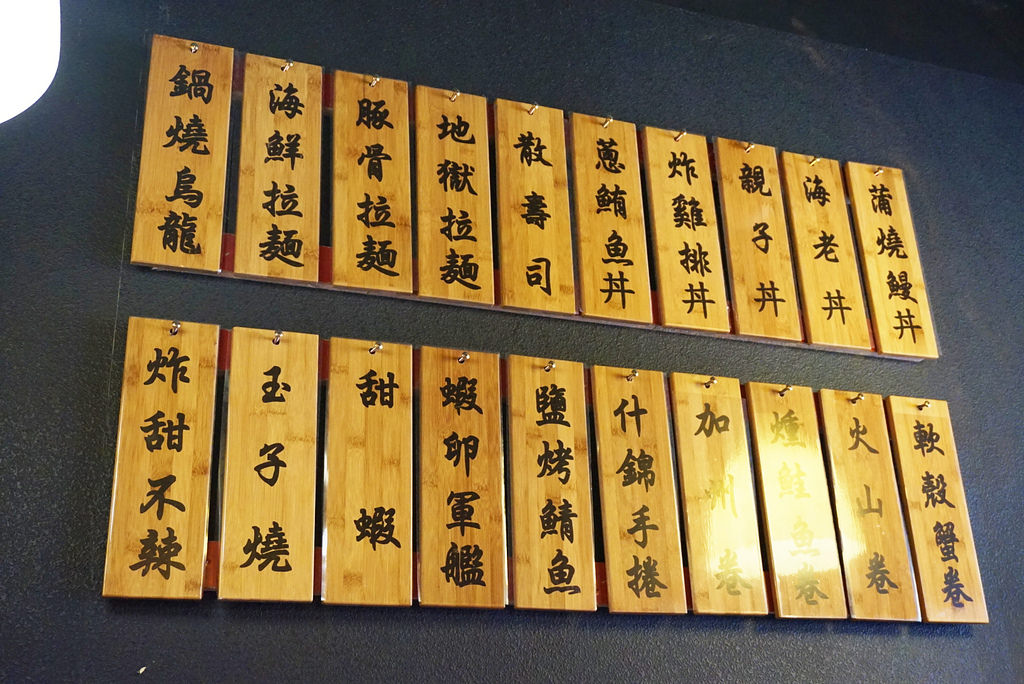 鍋燒烏龍
海鮮拉麵
豚骨拉麵
地獄拉麵
散壽司
蔥鮪魚丼
炸雞排丼
親子丼
海老丼
蒲燒鰻丼
炸甜不辣
玉子燒
甜蝦
蝦卵軍艦
鹽烤鯖魚
什錦手捲
加州卷
燻鮭魚卷
火山卷
軟殼蟹卷